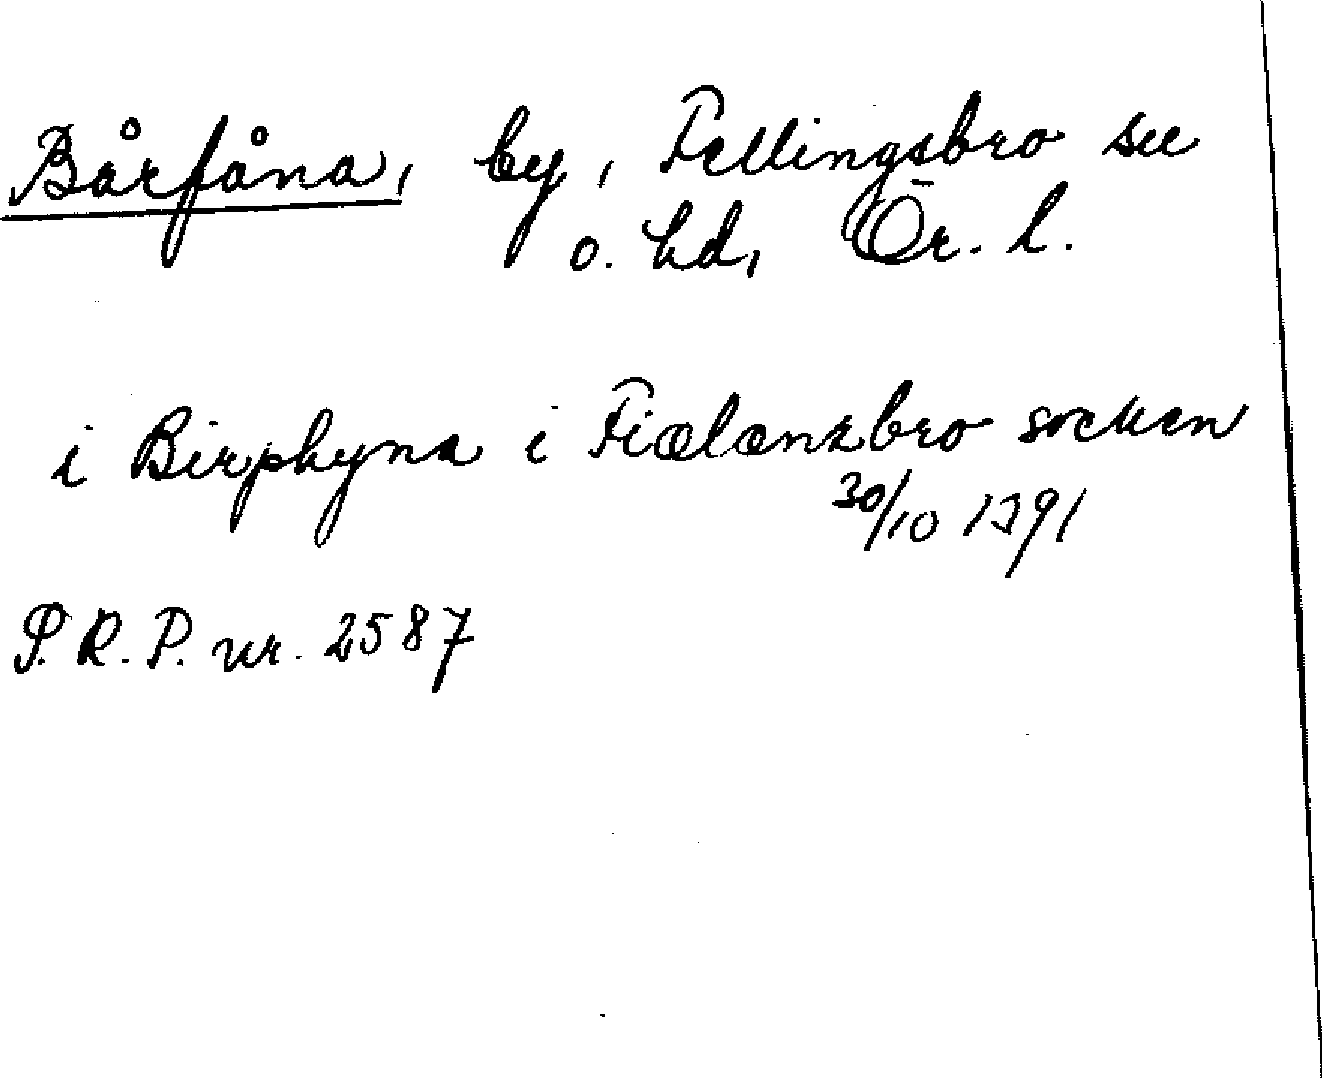 Bårfåna, by, Fellingsbro sn
o. hd, Ör. l.
i Birphyna i Fiælænzbro socken
30/10 1391
P.R.P. nr. 2587